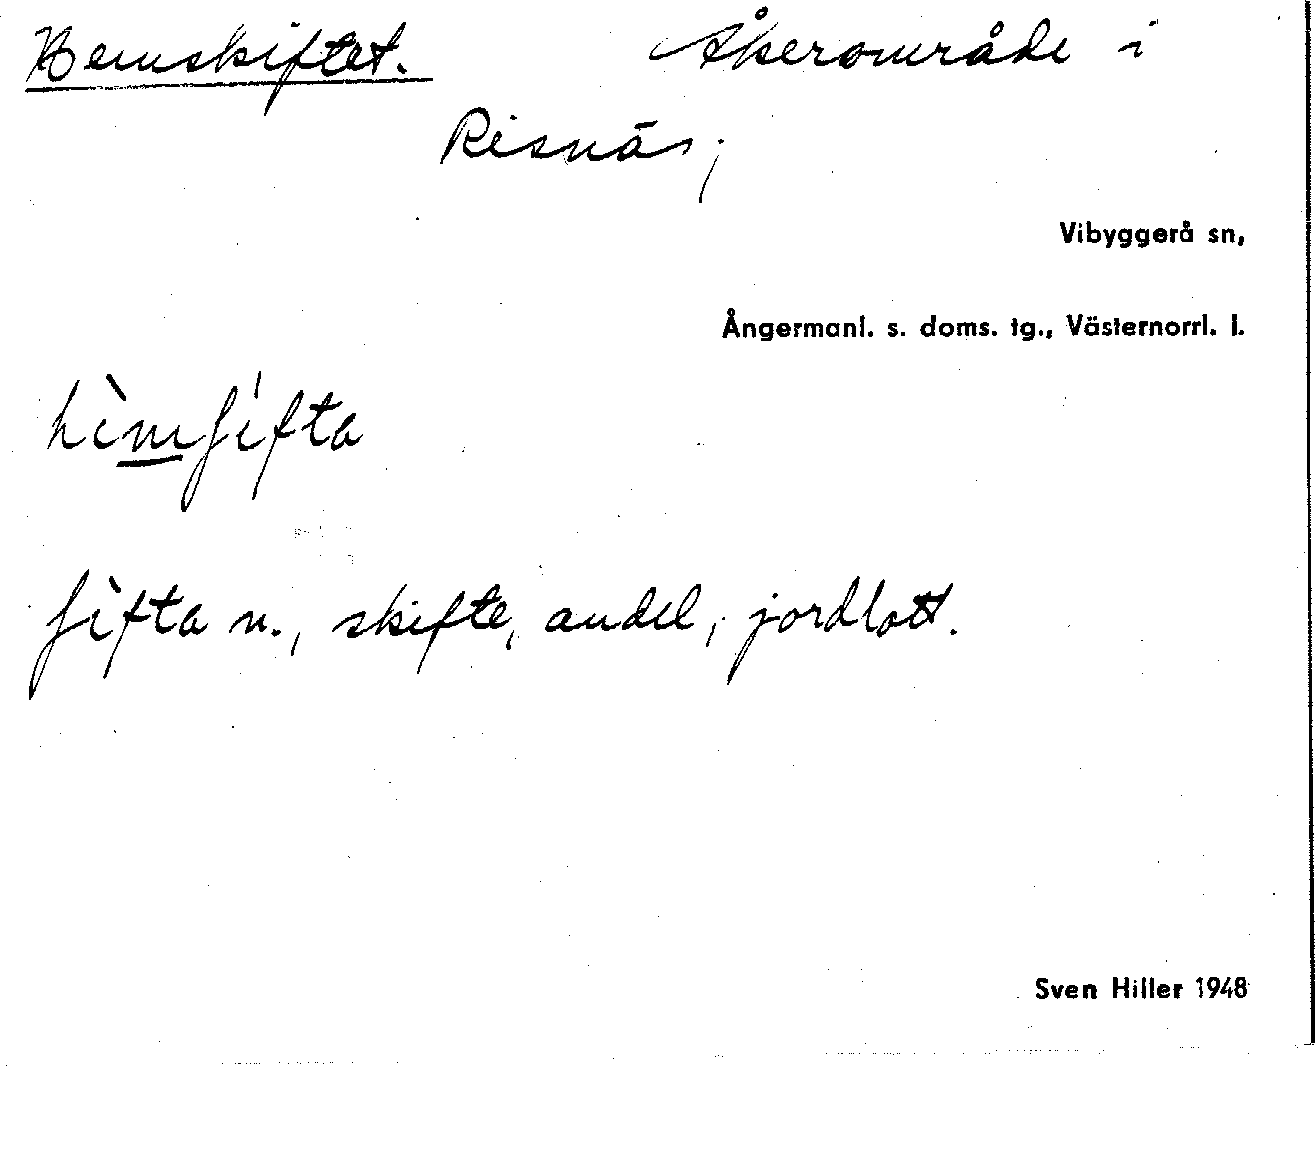 Hemskiftet. Åkerområde i
Risnäs;
Vibyggerå sn,
Ångermanl. s. doms. tg., Västernorrl. l.
hìmʃìfta
ʃìfta n., skifte, andel, jordlott.
Sven Hiller 1948